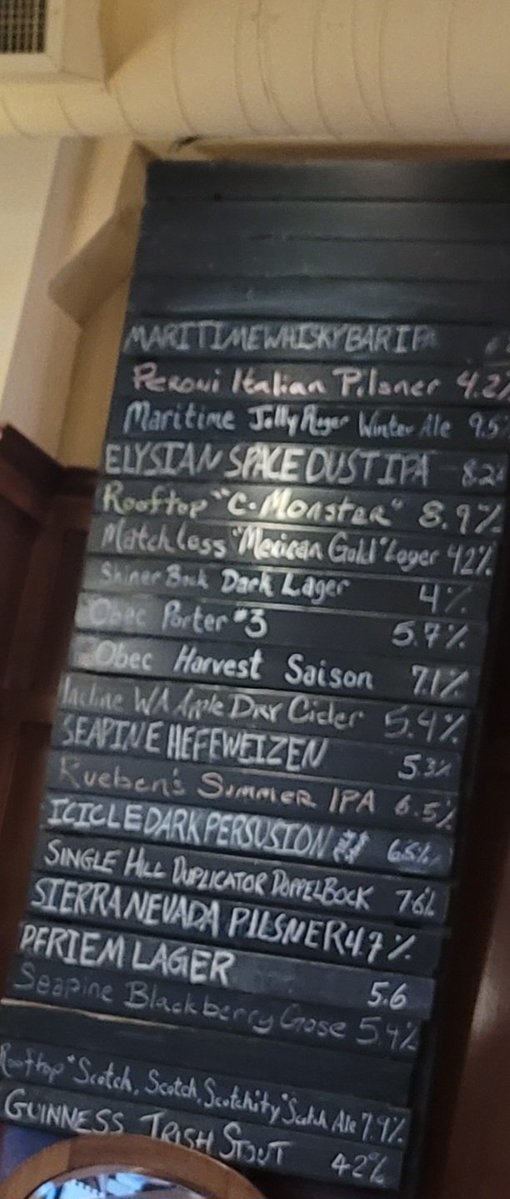 MARITIME WHISKY BAR IPA
Peroni Italian Pilsner 4.2%
Maritime Jolly Roger Winter Ale 9.5
ELYSIAN SPACE DUST IPA 8.2
Rooftop "C-Monster" 8.9%
Matchless "Mexican Gold" Lager 4.2%
Shiner Bock Dark Lager 4%
Obec Porter #3 5.7%
Obec Harvest Saison 7.1%
Incline WA Apple Dry Cider 5.4%
SEAPINE HEFEWEIZEN 5.3%
Rueben's Summer IPA 6.5%
ICICLE DARK PERSUSION 6.5%
SINGLE HILL DUPLICATOR DOPPELBOCK 7.6%
SIERRA NEVADA PILSNER 4.7%
PFRIEM LAGER 5.6
Seapine Blackberry Gose 5.4%
Rooftop "Scotch, Scotch, Scotchity" Scotch Ale 7.9%
GUINNESS IRISH STOUT 4.2%